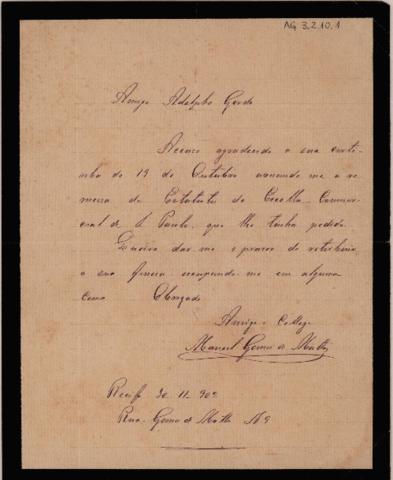 AG 3.2.10.1
Amigo Adolpho Gordo
Accuso agradecido a sua carti-
nha de 19 de Outubro accusando me a re-
messa de Estatutos da Escolla Commer-
cial de S. Paulo que lhe tenha pedido
Queira dar-me o prazer de retribuir
a sua fineza occupando-me em alguma
cousa Obrigado
Amigo e Collega
Manoel Gomes de Mattos
Recife 30. 11. 902
Rua Gomes de Mattos Nº 9